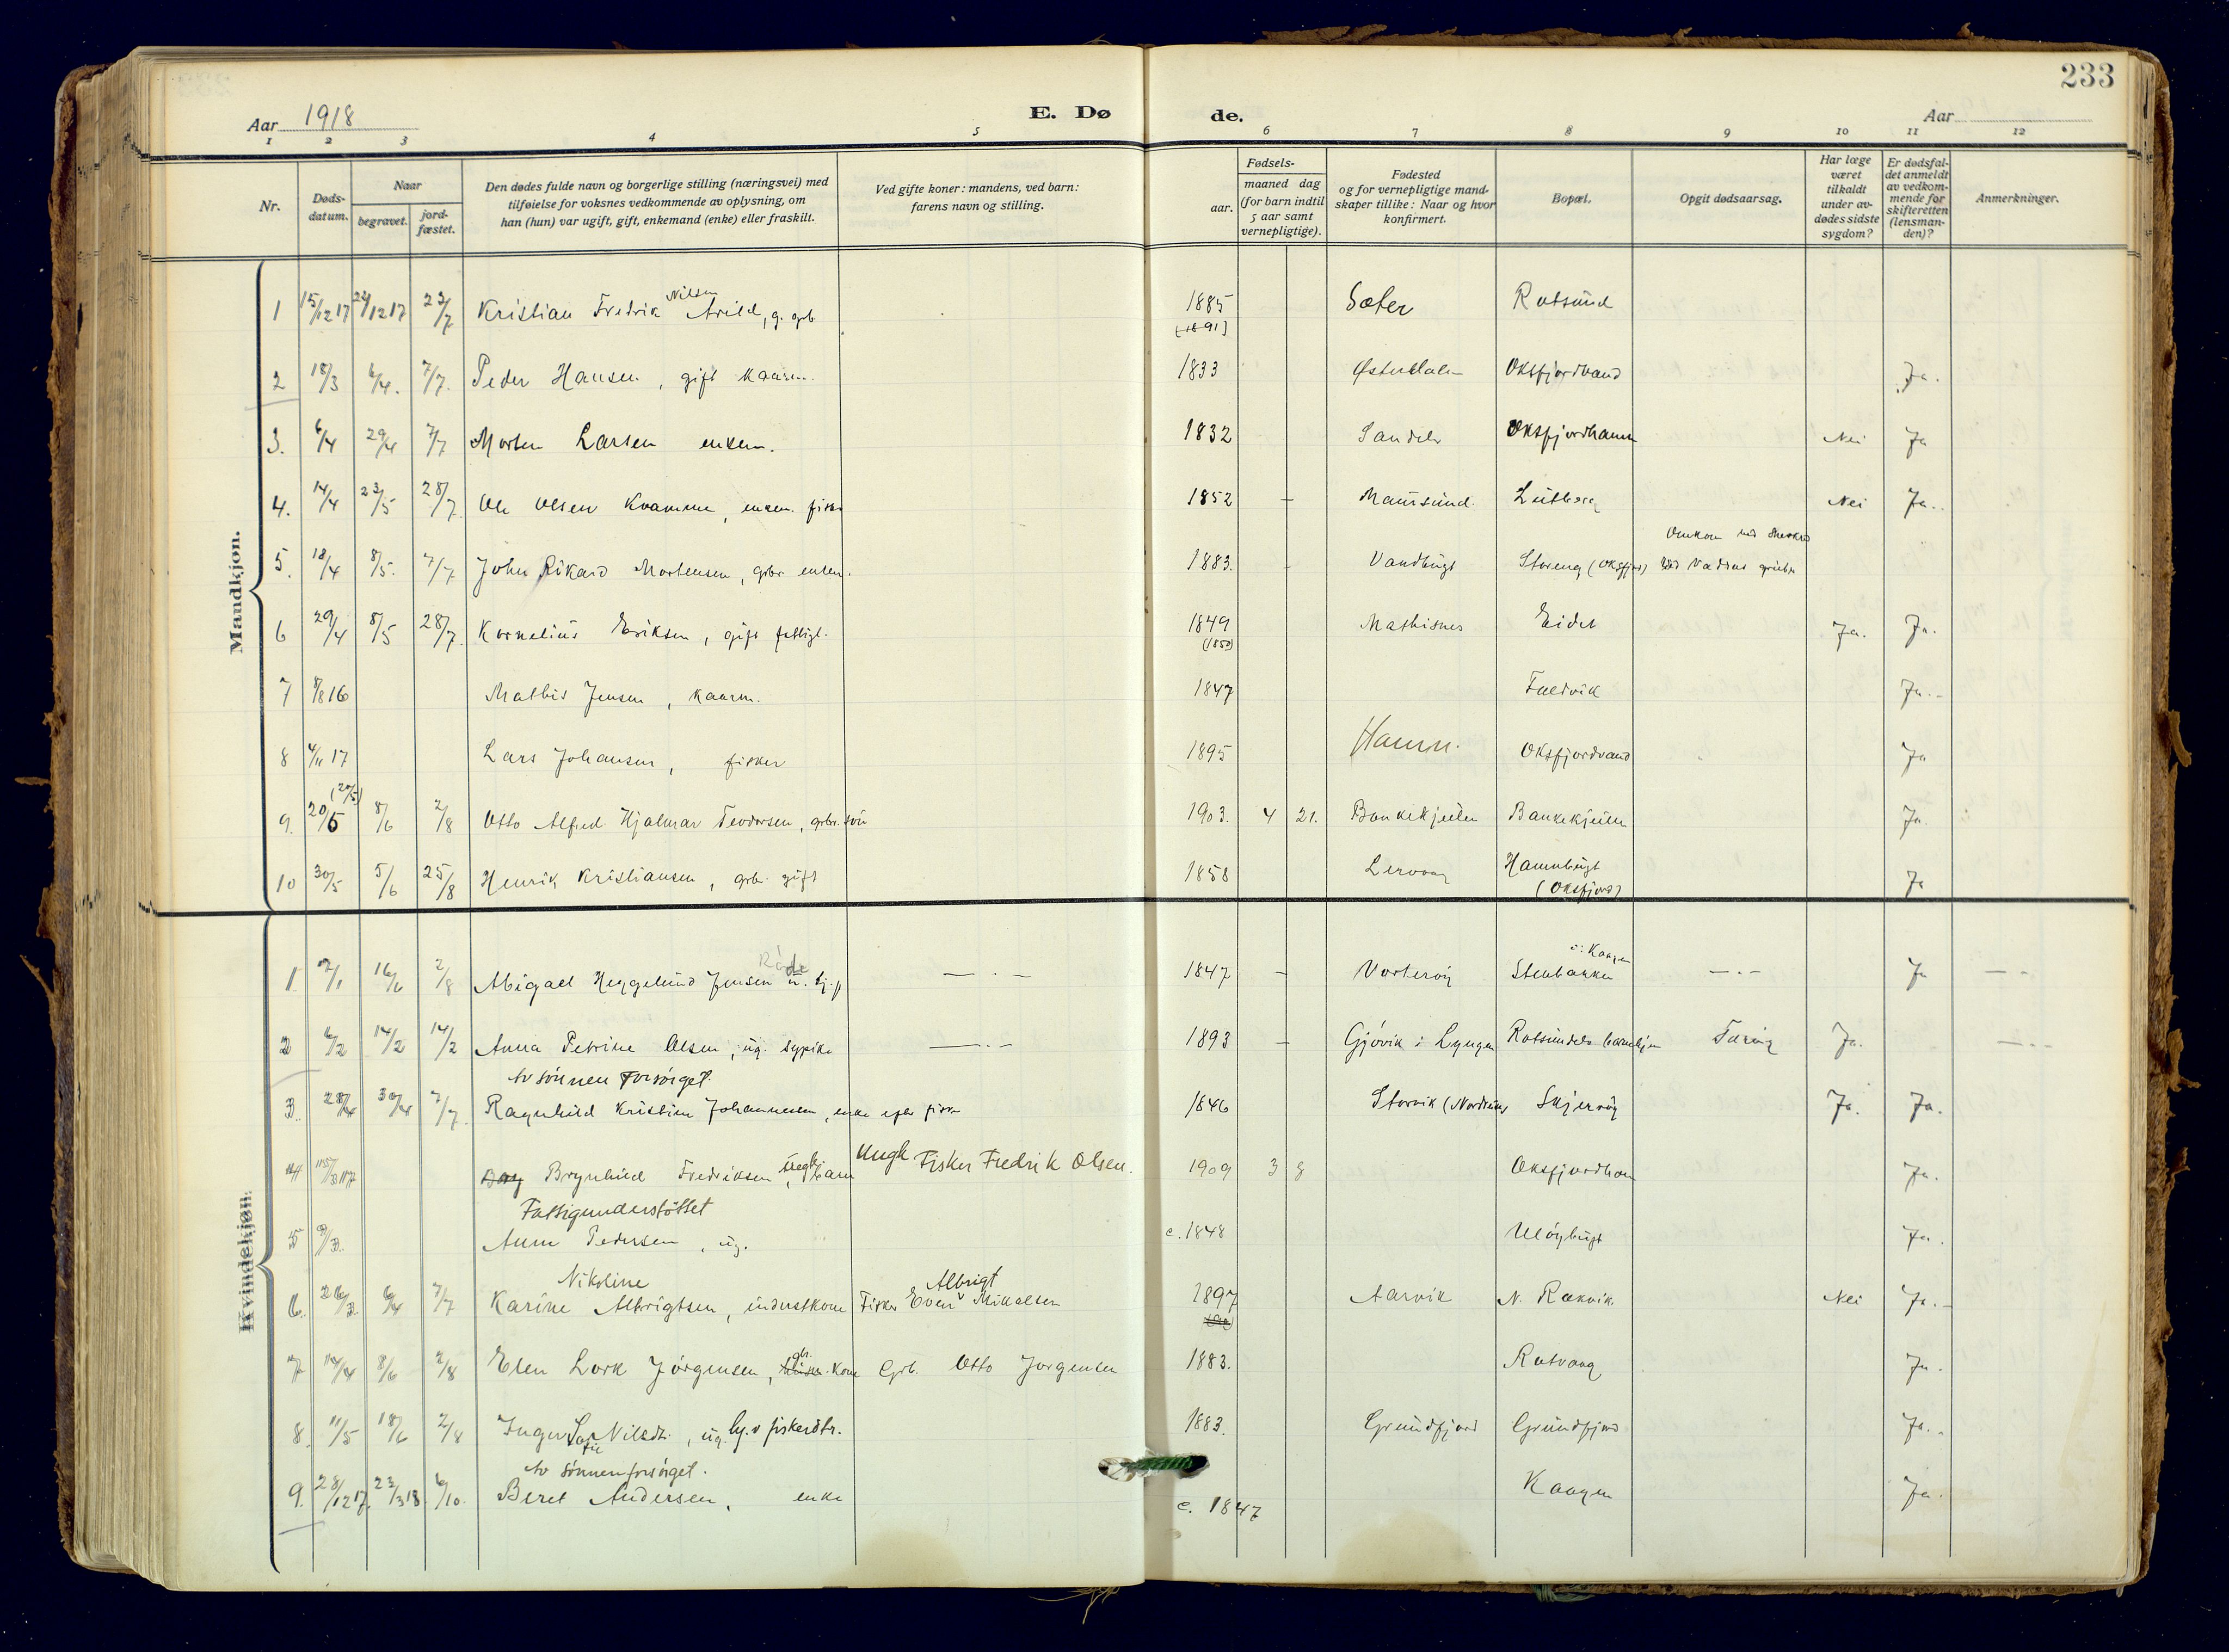 233
Aar 1918
E. Dø de.
Aar
1 2 3 4 5 6 7 8 9 10 11 12
Nr.
Døds-datum.
Naar
begravet.
jord-fæstet.
Den dødes fulde navn og borgerlige stilling (næringsvei) med
tilføielse for voksnes vedkommende av oplysning, om
han (hun) var ugift, gift, enkemand (enke) eller fraskilt.
Ved gifte koner: mandens, ved barn:
farens navn og stilling.
Fødsels-
aar.
maaned dag
(for barn indtil
5 aar samt
vernepligtige).
Fødested
og for vernepligtige mand-
skaper tillike: Naar og hvor
konfirmert.
Bopæl.
Opgit dødsaarsag.
Har læge
været
tilkaldt
under av-
dødes sidste
sygdom?
Er dødsfal-
det anmeldt
av vedkom-
mende for
skifteretten
(lensman-
den)?
Anmerkninger.
Mandkjøn.
1 15/12 17 22/12 17 23/7 Kristian Fredrik Nilsen Arild, g. grb 1885 Sæter Rotsund
(1891)
2 18/3 6/4. 7/7. Peder Hansen, gift kaarm. 1833 Østerdalen Oksfjordvand Ja.
3. 6/4 29/4 7/7 Morten Larsen enkem. 1832 Sandelv Oksfjordhamn Nei Ja
4. 14/4 23/5 28/7. Ole Olsen Kvamme, enkem. fisker 1852 – Maursund. Nei Ja.
5. 18/4 8/5. 7/7 John Rikard Mortensen, grbr. enkem. 1883. – Vandbugt Storeng (Oksfjord) Omkom ved
ved Vaddas gruber
6 29/4 8/5 28/7. Kornelius Eriksen, gift fattigl. 1849 Mathisnes Eidet Ja. Ja.
(1850)
7 8/8 16 Mathis Jensen, kaarm. 1847 Ja.
8 4/11 17 Lars Johansen, fisker 1895 Hamn. Oksfjordvand Ja
9. 20/5 8/6 2/8 Otto Alfred Hjalmar Teodorsen, grbr. søn 1903. 4 21. Bankekjeilen Bankekjeilen Ja
10 30/5 5/6 25/8 Henrik Kristiansen, grb. gift 1858 Lervaag Hamnbugt
(Oksfjord) Ja
Kvindekjøn.
1 7/1 16/6 2/8 Abigael Heggelund Jensen 1847 – Vorterøy Stenbakken i Kaagen Ja
2 6/2 14/2 14/2 Anna Petrine Olsen, ug. sypike 1893 – Gjøvik i Lyngen Ja.
Av sönnen forsörget.
3. 28/4 30/4 7/7. Ragnhild Kristine Johannesen, enke efter fisker 1846 Storvik (Nordreisa) Skjervøy Ja. Ja.
4 Brynhild Fredriksen, uegte barn Ungk Fisker Fredrik Olsen. 1909 3 8 Oksfjordhamn Ja.
Fattigunderstöttet
5 9/3. Anne Pedersen, ug. c. 1848 Uløybugt Ja.
6. 26/3. 6/4 7/7 Karine Nikoline Albrigtsen, industkone Fisker Even Albrigt Mikalsen 1897 Aarvik N. Rækvik. Nei Ja.
7 14/4 8/6 2/8 Elen Lork Jörgensen, gb. kone Grb. Otto Jorgensen 1883. Rotvaag Ja.
8. 11/5 18/6 2/8 Inger Sofie Nilsdt., ug. lg. v fiskerdtr. 1883. Grundfjord Grundfjord Ja.
Av sönnen forsörget.
9. 28/12 17. 23/3 18. 6/10. Beret Andersen, enke c. 1847 Kaagen Ja.